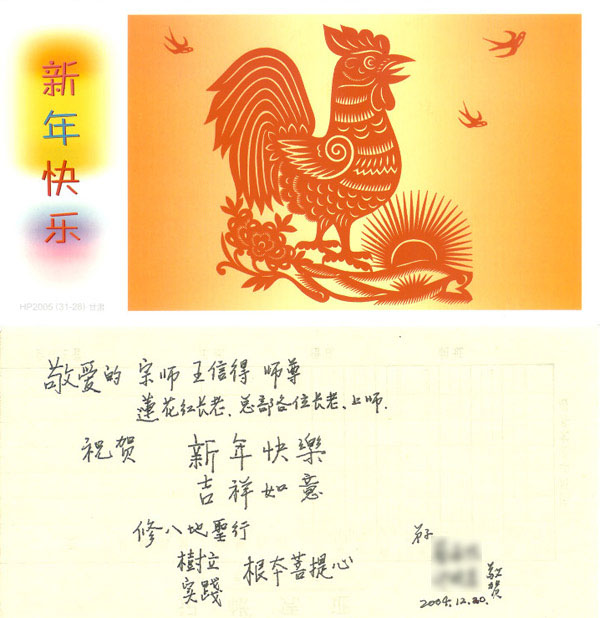 新年快乐
HP2005 (31-26) 甘肃
敬爱的 宗师 王信得 师尊
蓮花红长老、总部各位长老、上师.
祝贺 新年快樂
吉祥如意
修八地聖行
樹立
实踐 根本菩提心
弟子
敬贺
2004.12.20.